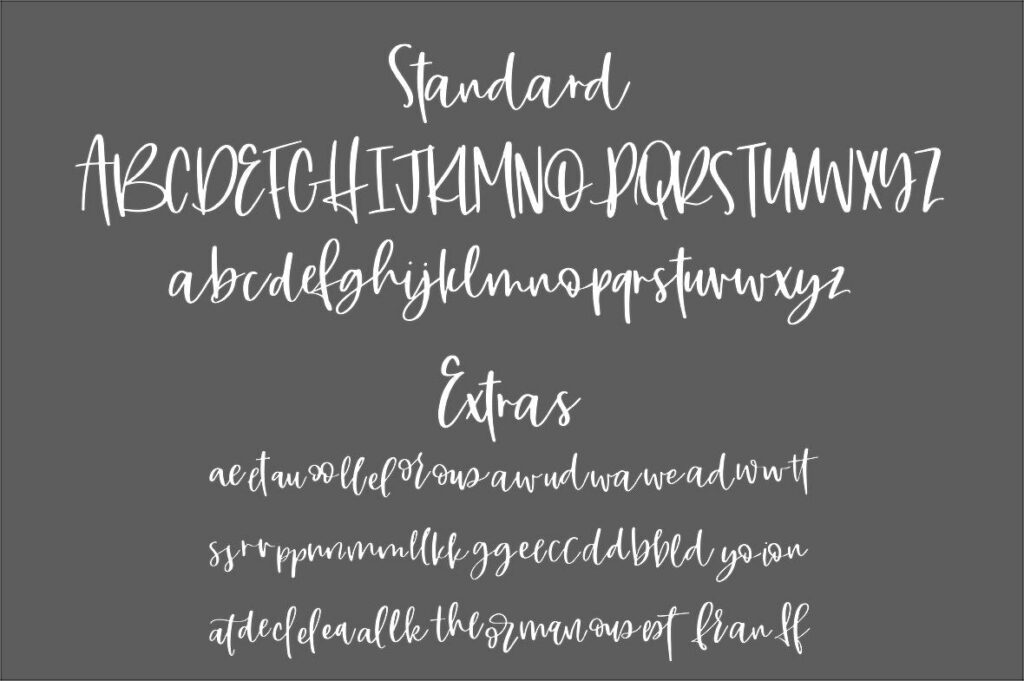 Standard
ABCDEFGHIJKLMNOPQRSTUVWXYZ
abcdefghijklmnopqrstuvwxyz
Extras
aeetauoollelorousawudwaweadwwtt
ssrrppnnmmllkkggeeccddbbldyoion
atdeclefeaallktheormanousostfranff